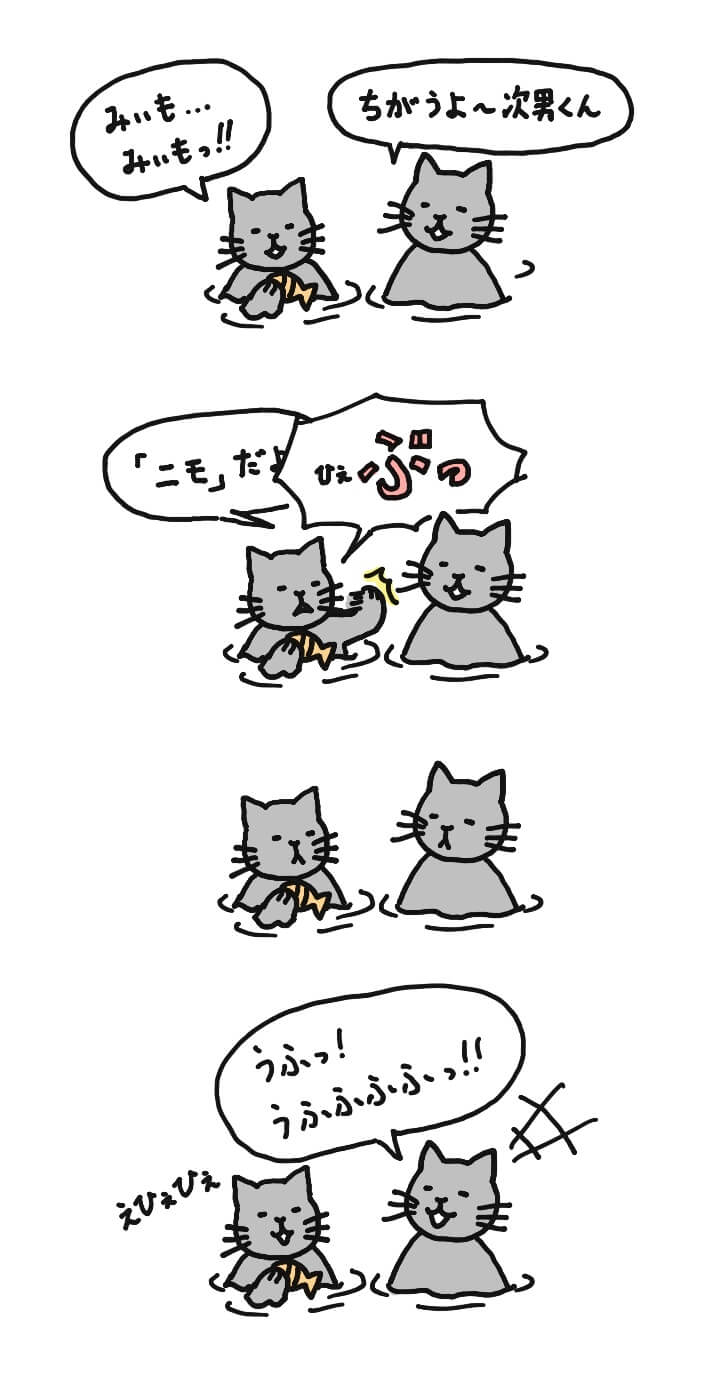 みぃも…
みぃもっ!!
ちがうよ～次男くん
「ニモ」だよ
ひぇ
ぶっ
うふっ!
うふふふふっ!!
えひぇひぇ